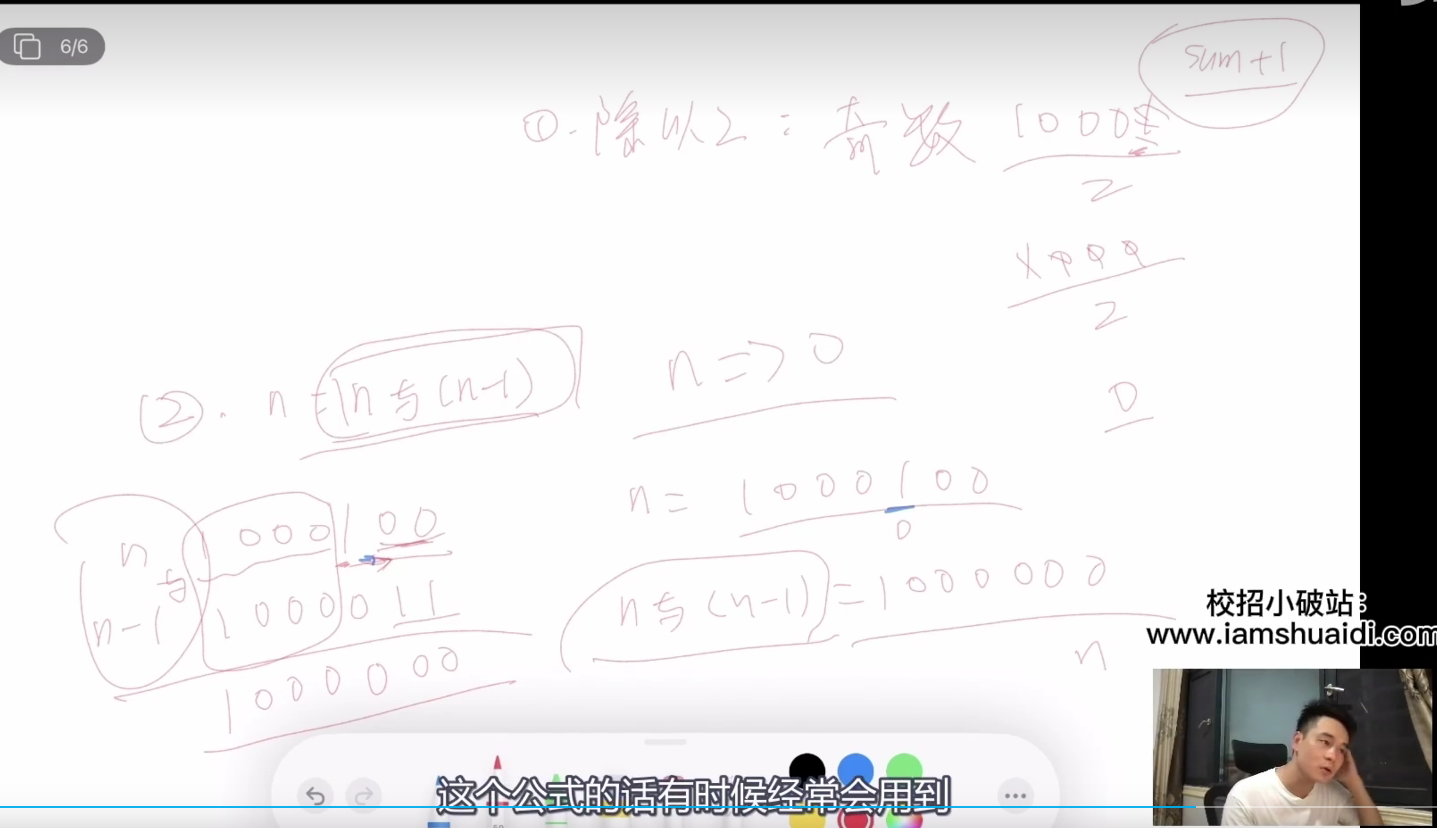 6/6
sum+1
①. 除以2: 奇数 10001
2
2
0
②. n = n与(n-1) n=>0
n = 1000100
0
n 1000100
与
n-1 1000011
1000000
n与(n-1) = 1000000
n
校招小破站:
www.iamshuaidi.com
这个公式的话有时候经常会用到